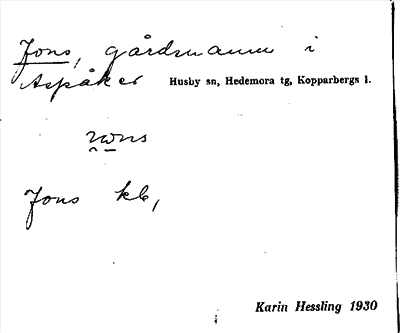 Jons, gårdsnamn i
Aspåker Husby sn, Hedemora tg, Kopparbergs l.
Jons kb,
Karin Hessling 1930